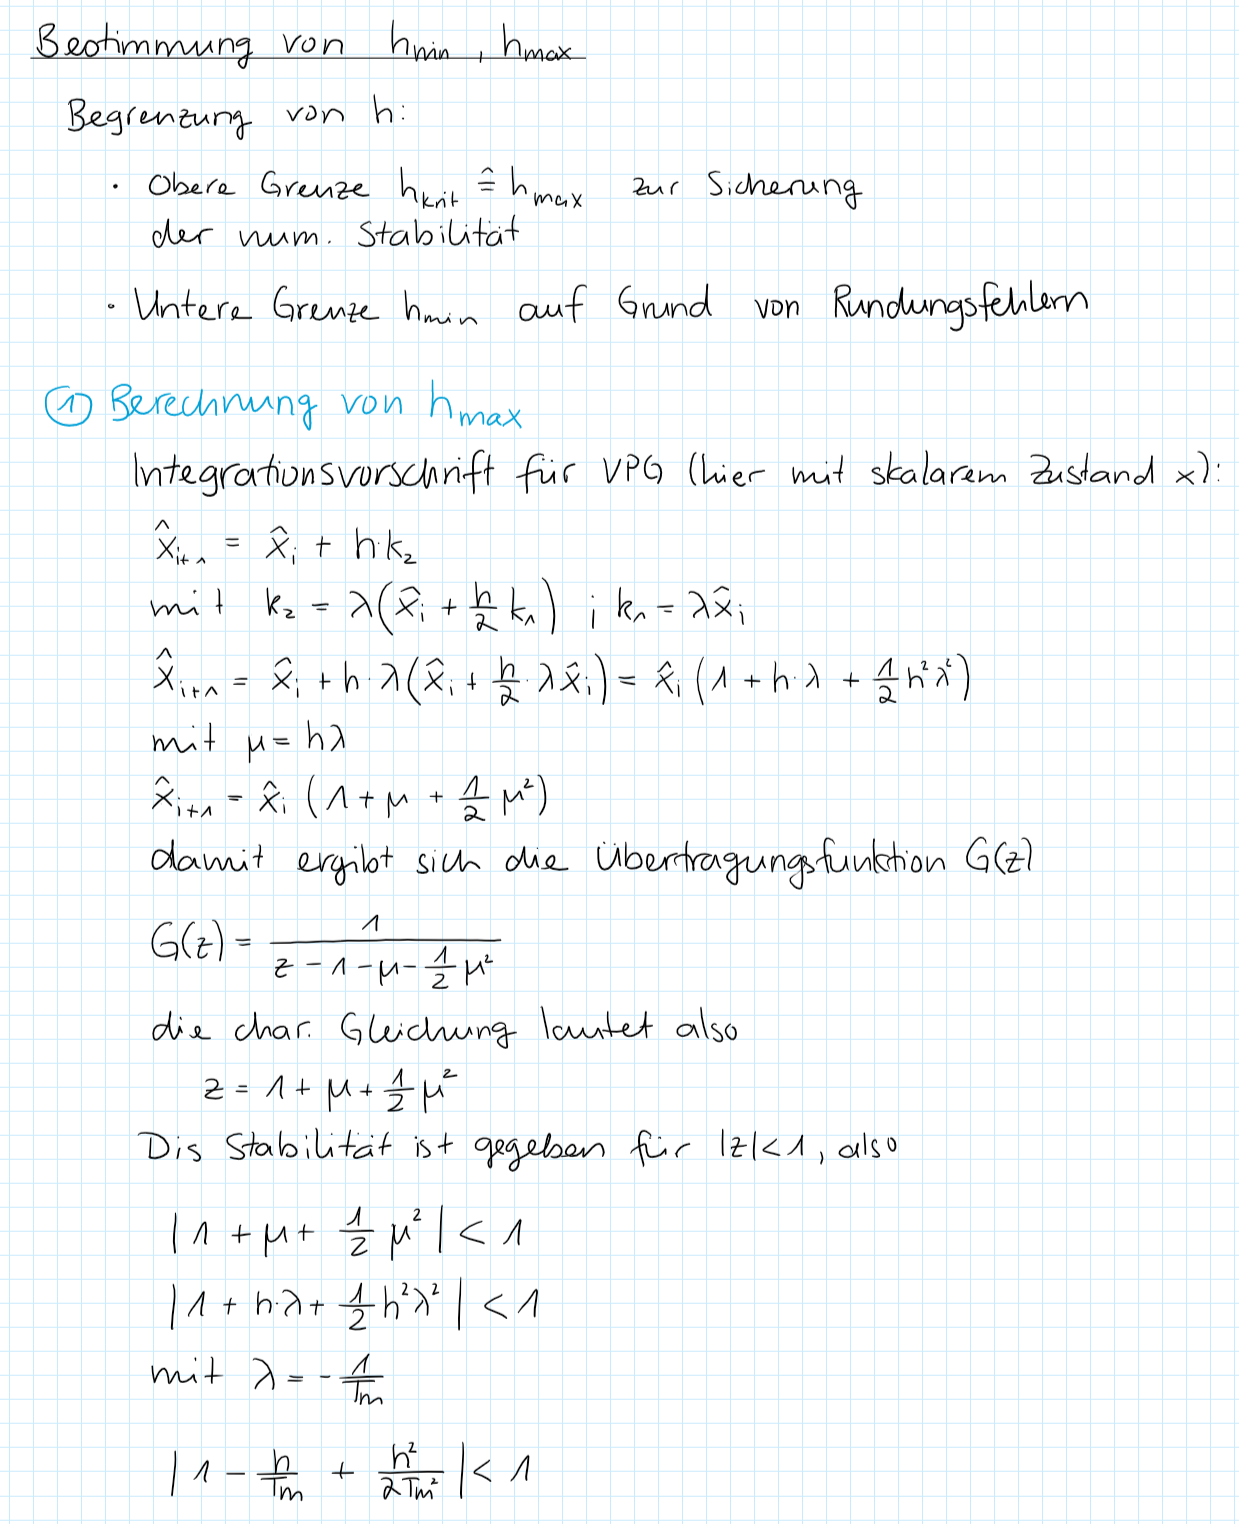 Bestimmung von h_min, h_max
Begrenzung von h:
· Obere Grenze h_krit ≙ h_max zur Sicherung
der num. Stabilität
· Untere Grenze h_min auf Grund von Rundungsfehlern
① Berechnung von h_max
Integrationsvorschrift für VPG (hier mit skalarem Zustand x):
x̂_{i+1} = x̂_i + h·k_2
mit k_2 = λ(x̂_i + h/2 k_1) ; k_1 = λx̂_i
x̂_{i+1} = x̂_i + h·λ(x̂_i + h/2·λx̂_i) = x̂_i (1 + h·λ + 1/2 h²λ²)
mit μ = hλ
x̂_{i+1} = x̂_i (1 + μ + 1/2 μ²)
damit ergibt sich die Übertragungsfunktion G(z)
G(z) = 1/(z - 1 - μ - 1/2 μ²)
die char. Gleichung lautet also
z = 1 + μ + 1/2 μ²
Dis Stabilität ist gegeben für |z| < 1, also
|1 + μ + 1/2 μ²| < 1
|1 + h·λ + 1/2 h²λ²| < 1
mit λ = - 1/T_m
|1 - h/T_m + h²/(2T_m²)| < 1